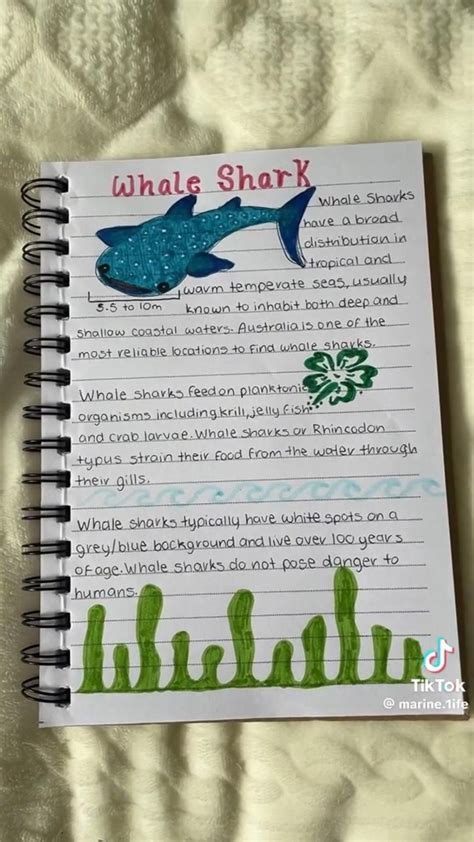 Whale Shark
Whale Sharks
have a broad
distribution in
tropical and
warm temperate seas, usually
5.5 to 10m
known to inhabit both deep and
shallow coastal waters. Australia is one of the
most reliable locations to find whale sharks.
Whale sharks feed on planktonic
organisms including krill, jelly fish
and crab larvae. Whale sharks or Rhincodon
typus strain their food from the water through
their gills.
Whale sharks typically have white spots on a
grey/blue background and live over 100 years
of age. Whale sharks do not pose danger to
humans.
TikTok
@ marine.1ife